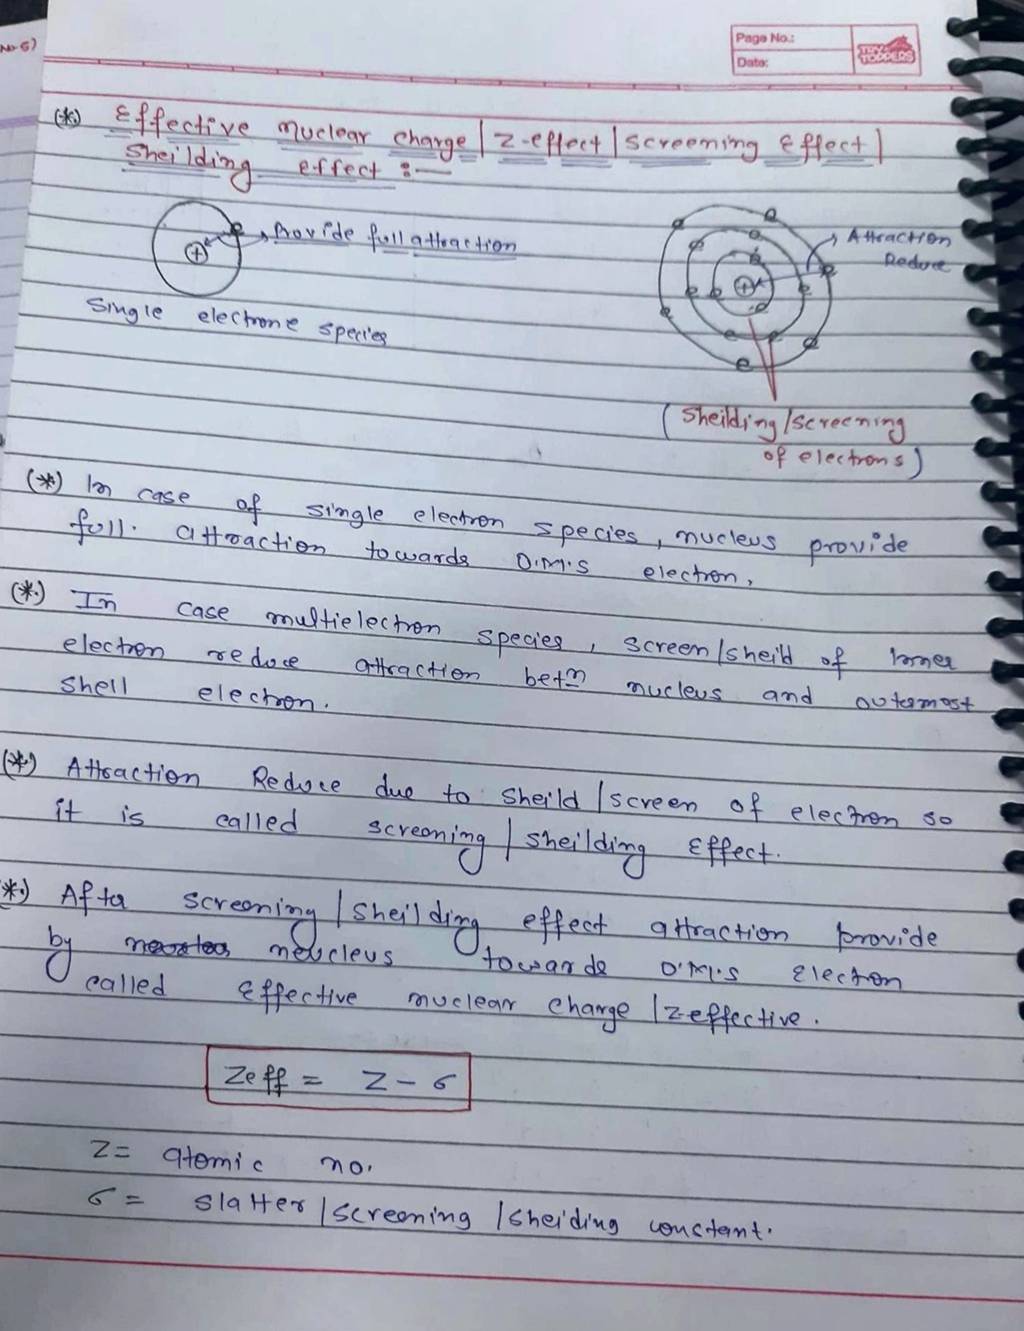 No-5)
Page No.:
Date:
TRY
TOPPERS
(*) Effective nuclear charge | Z-effect | screening Effect |
Sheilding effect :-
Provide full attraction
Single electrone species
Attraction
Reduce
(Sheilding/screening
of electrons)
(*) In case of single electron species, nucleus provide
full. attraction towards O.M.S electron,
(*.) In case multielectron species, screen/sheild of Inner
electron reduce attraction betn nucleus and outermost
shell electron.
(*.) Attraction Reduce due to sheild/screen of electron so
it is called screening | sheilding Effect.
*.) After screening | sheilding effect attraction provide
by neucleus towards O.M.S Electron
called Effective nuclear charge | z-effective.
Zeff = Z - σ
Z = atomic no.
σ = slatter | screening | sheiding constant.